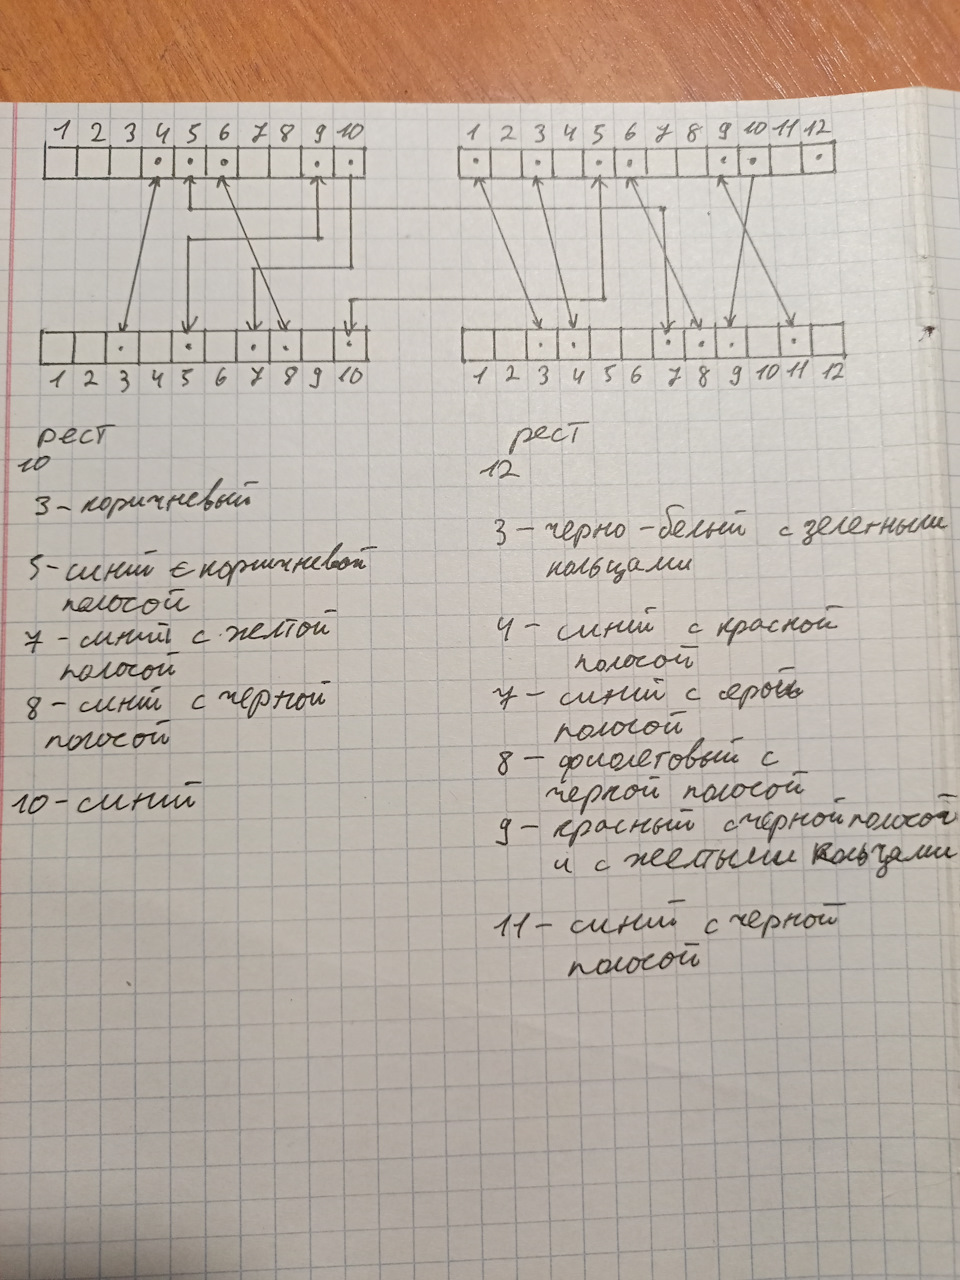 1 2 3 4 5 6 7 8 9 10
1 2 3 4 5 6 7 8 9 10 11 12
1 2 3 4 5 6 7 8 9 10
1 2 3 4 5 6 7 8 9 10 11 12
рест
10
3 - коричневый
5 - синий с коричневой
полосой
7 - синий с желтой
полосой
8 - синий с черной
полосой
10 - синий
рест
12
3 - черно - белый с зелеными
кольцами
4 - синий с красной
полосой
7 - синий с
полосой
8 - фиолетовый с
черной полосой
9 - красный с черной полосой
и с желтыми кольцами
11 - синий с черной
полосой